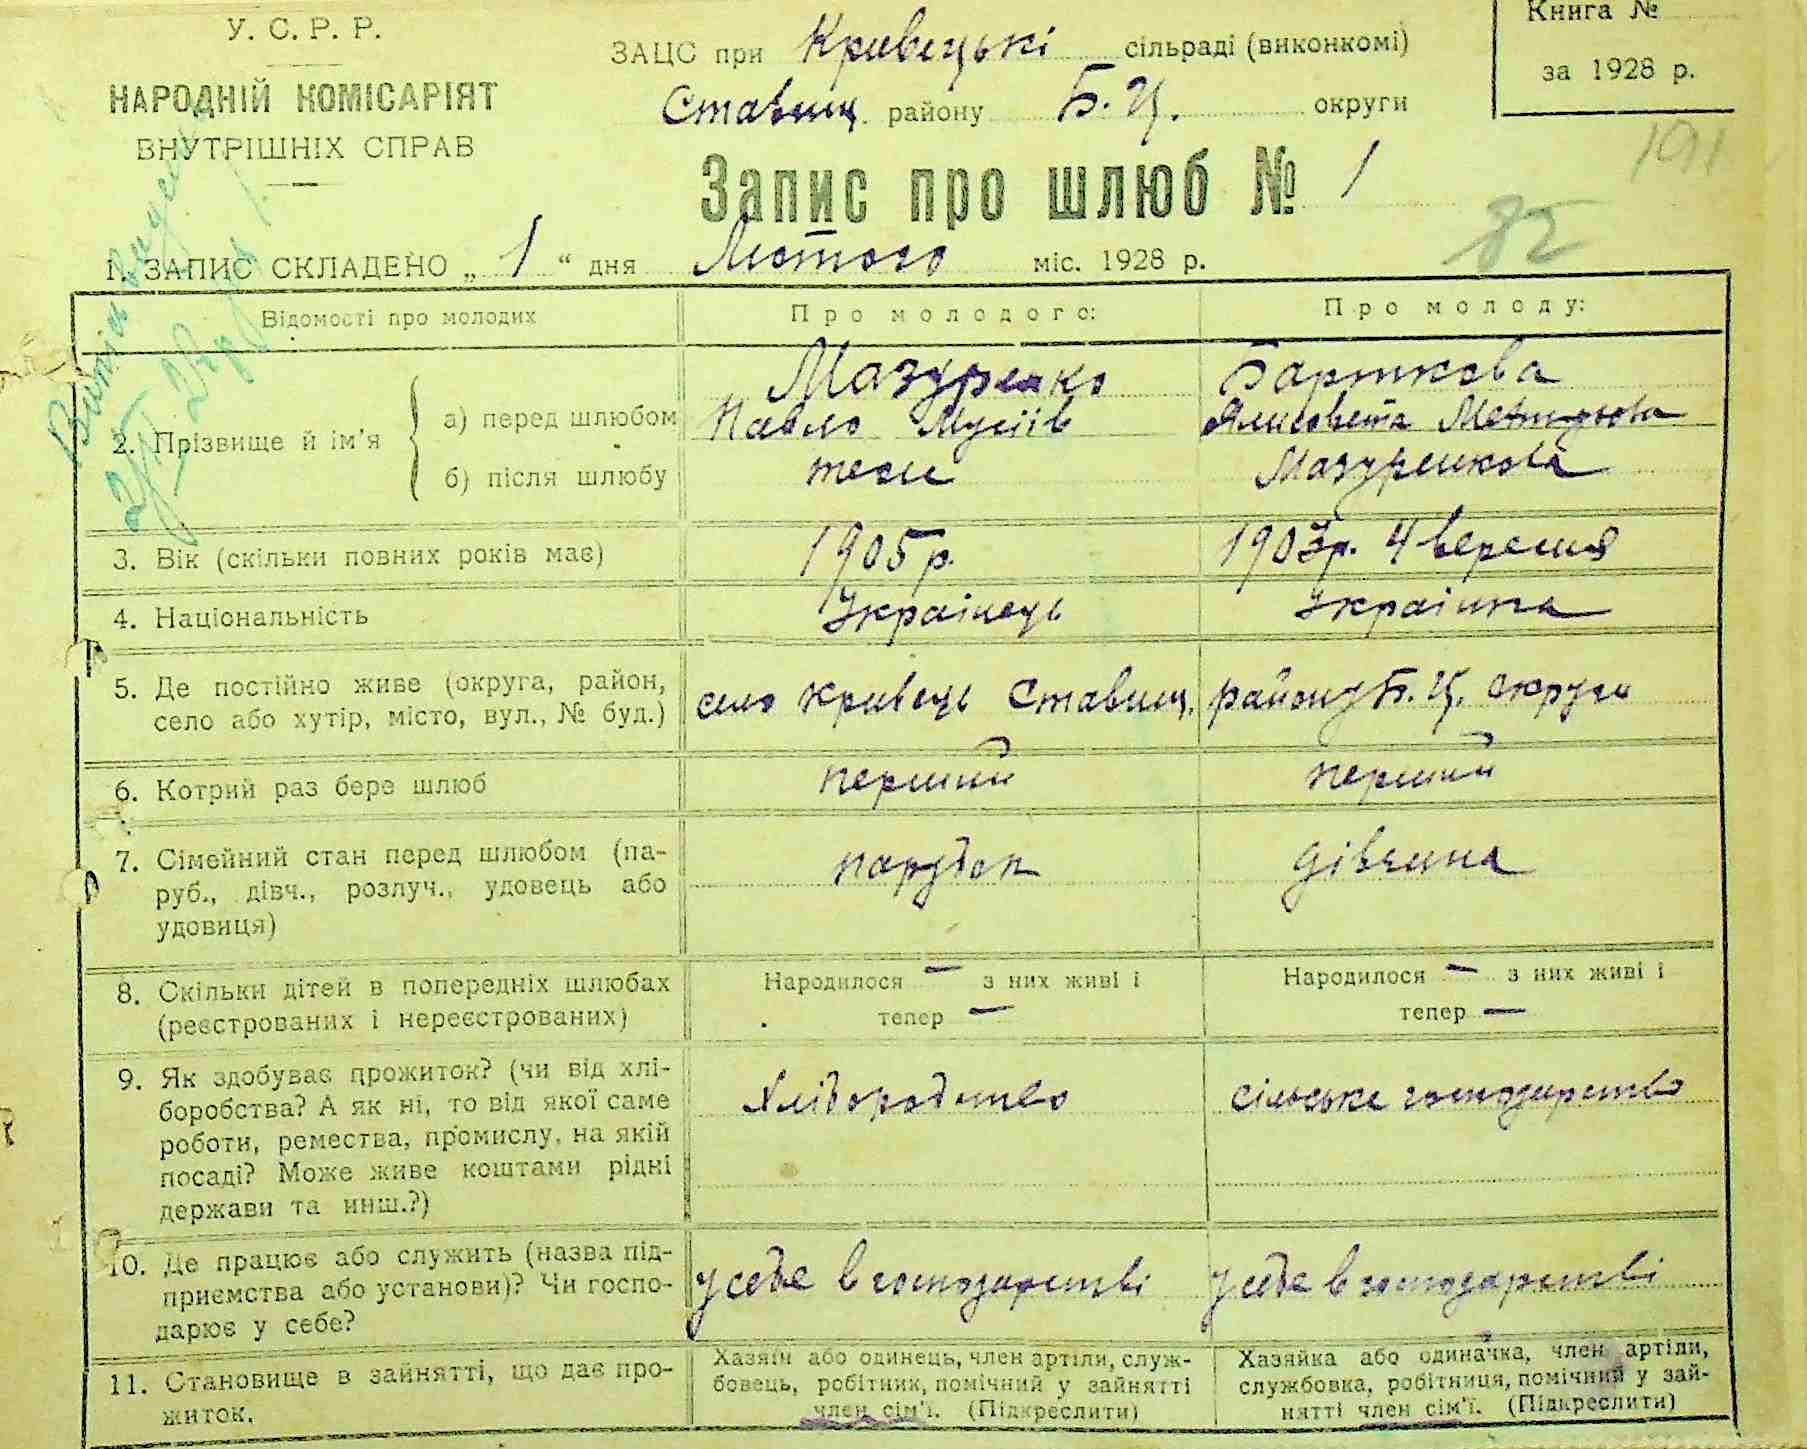 У. С. Р. Р.
НАРОДНІЙ КОМІСАРІЯТ
ВНУТРІШНІХ СПРАВ
ЗАЦС при Кривецькі сільраді (виконкомі)
Ставищ. району Б. Ц. округи
Книга №
за 1928 р.
191
Запис про шлюб № 1
82
1. ЗАПИС СКЛАДЕНО „ 1 “ дня Лютого міс. 1928 р.
Відомості про молодих
Про молодого:
Про молоду:
2. Прізвище й ім'я
а) перед шлюбом
Мазуренко
Павло Мусіїв
Барткова
Ялисовета
б) після шлюбу
теж
Мазуренкова
3. Вік (скільки повних років має)
1905 р.
1903р. 4 вересня
4. Національність
Українець
Українка
5. Де постійно живе (округа, район,
село або хутір, місто, вул., № буд.)
село Кривець Ставищ. району Б. Ц. округи
6. Котрий раз бере шлюб
перший
перший
7. Сімейний стан перед шлюбом (па-
руб., дівч., розлуч., удовець або
удовиця)
парубок
дівчина
8. Скільки дітей в попередніх шлюбах
(реєстрованих і нереєстрованих)
Народилося — з них живі і
тепер —
Народилося — з них живі і
тепер —
9. Як здобуває прожиток? (чи від хлі-
боробства? А як ні, то від якої саме
роботи, ремества, промислу, на якій
посаді? Може живе коштами рідні
держави та инш.?)
Хліборобство
сільське господарство
10. Де працює або служить (назва під-
приємства або установи)? Чи госпо-
дарює у себе?
у себе в господарстві
у себе в господарстві
11. Становище в зайнятті, що дає про-
житок.
Хазяїн або одинець, член артіли, служ-
бовець, робітник, помічний у зайнятті
член сім'ї. (Підкреслити)
Хазяйка або одиначка, член артіли,
службовка, робітниця, помічний у зай-
нятті член сім'ї. (Підкреслити)